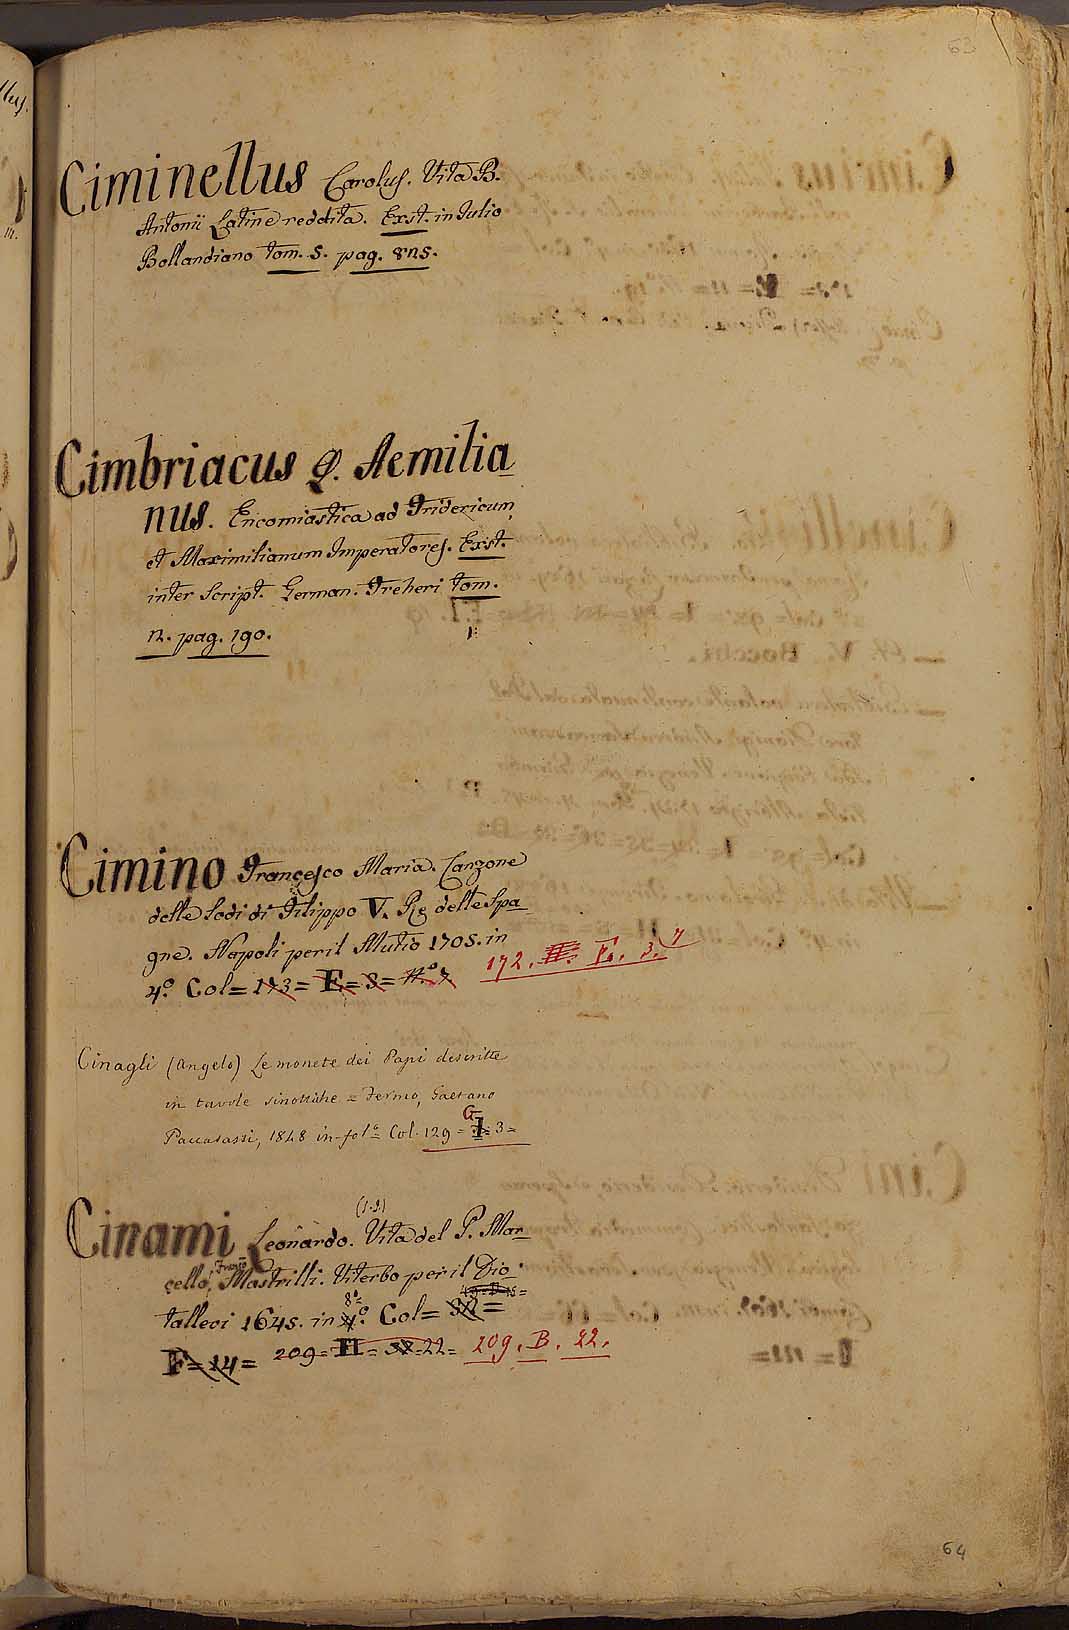 63
Ciminellus Carolus. Vita B.
Antonii Latine reddita. Exst. in Julio
Bollandiano tom. 5. pag. 825.
Cimbriacus Q. Aemilia
nus. Encomiastica ad Fridericum,
et Maximilianum Imperatores. Exist.
inter Script. German. Freheri tom.
2. pag. 190.
Cimino Francesco Maria. Canzone
delle lodi di Filippo V. Re delle Spa
gne. Napoli per il Mutio 1705. in
4.º Col= 173= F.= 8= n.º 7 172. F. 3. 7
Cinagli (Angelo) Le monete dei Papi descritte
in tavole sinottiche = Fermo, Gaetano
Paccasassi, 1848 in-folº Col. 129 = G= 3=
Cinami Leonardo. (S.J.) Vita del P. Mar
cello Franc.º Mastrilli. Viterbo per il Dio
tallevi 1645. in 8º= 4.º Col=
F=14= 209= H= 22= 209. B. 22.
64